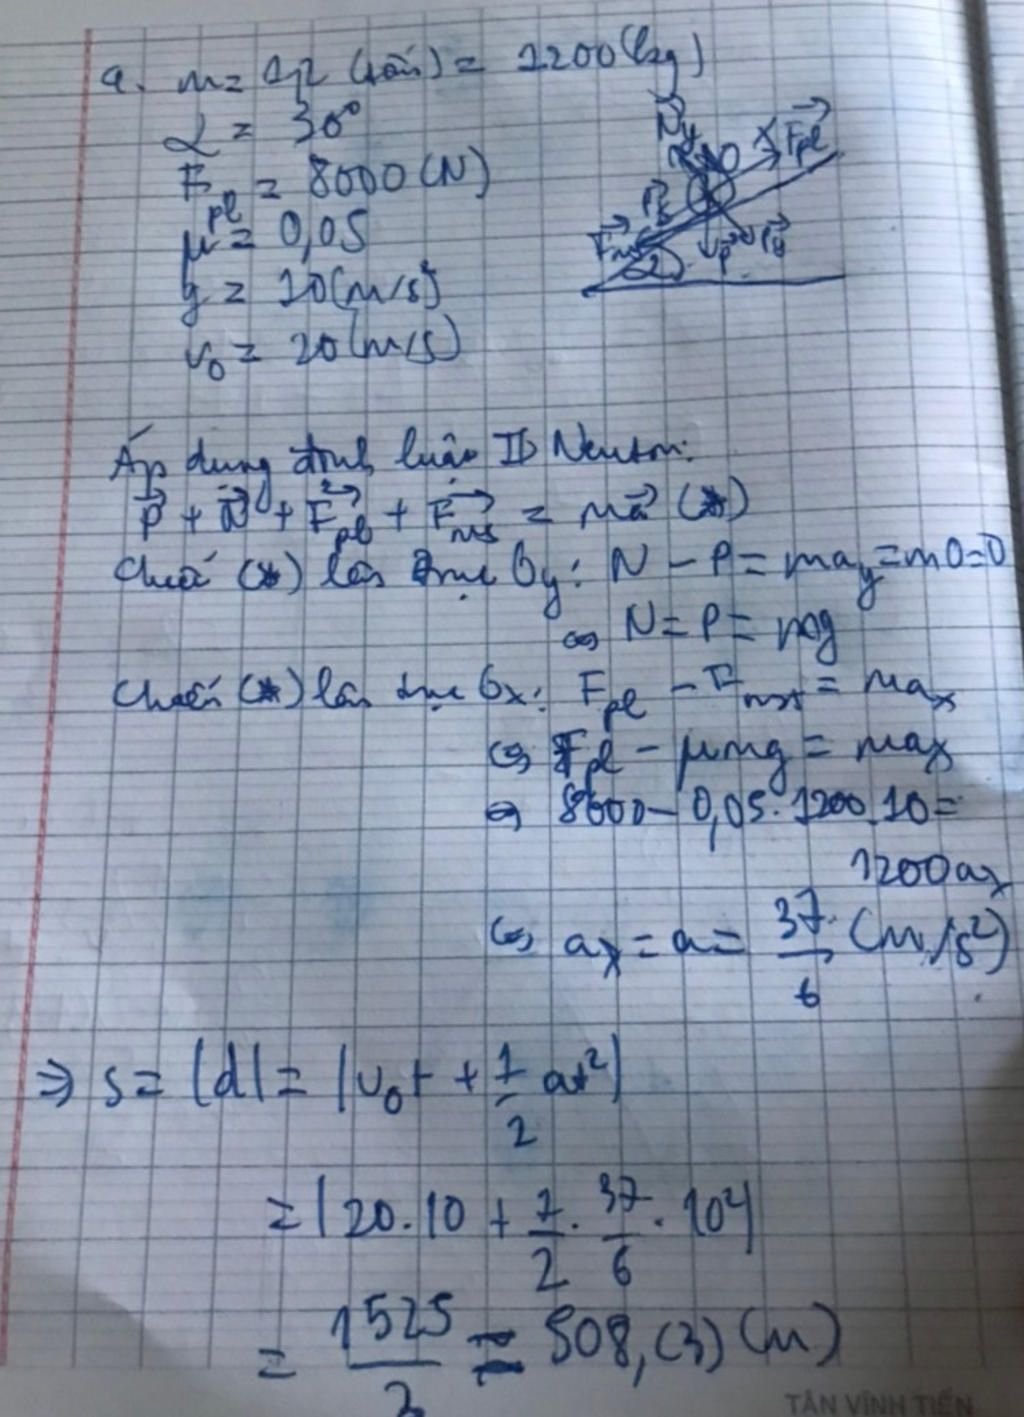 a. m = 1,2 (tấn) = 1200 (kg)
α = 30°
F_pl = 8000 (N)
μ = 0,05
g = 10 (m/s²)
v₀ = 20 (m/s)
N y O x F_pl
P_x
F_ms α P P_y
Áp dụng định luật II Newton:
P + N + F_pl + F_ms = ma (*)
Chiếu (*) lên trục Oy: N - P = ma_y = m0 = 0
⇔ N = P = mg
Chiếu (*) lên trục Ox: F_pl - F_mst = ma_x
⇔ F_pl - μmg = ma_x
⇔ 8000 - 0,05.1200.10 =
1200a_x
⇔ a_x = a = 37/6 (m/s²)
⇒ s = |d| = |v₀t + 1/2 at²|
= |20.10 + 1/2 . 37/6 . 10²|
= 1525/3 = 508,(3) (m)
TÂN VĨNH TIẾN